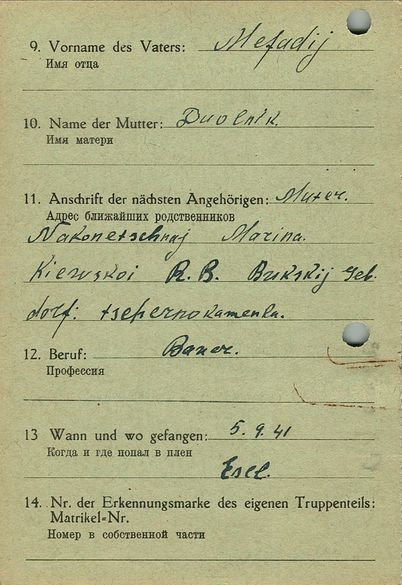 9. Vorname des Vaters: Mefadij
Имя отца
10. Name der Mutter: Duolnik.
Имя матери
11. Anschrift der nächsten Angehörigen: Muter.
Адрес ближайших родственников
Nakonetschnaj Marina.
Kiewskoi R.B. Bukskij Geb.
dorf: tschernokamenka.
12. Beruf: Bauer.
Профессия
13 Wann und wo gefangen: 5.9.41
Когда и где попал в плен
Esel.
14. Nr. der Erkennungsmarke des eigenen Truppenteils:
Matrikel-Nr.
Номер в собственной части